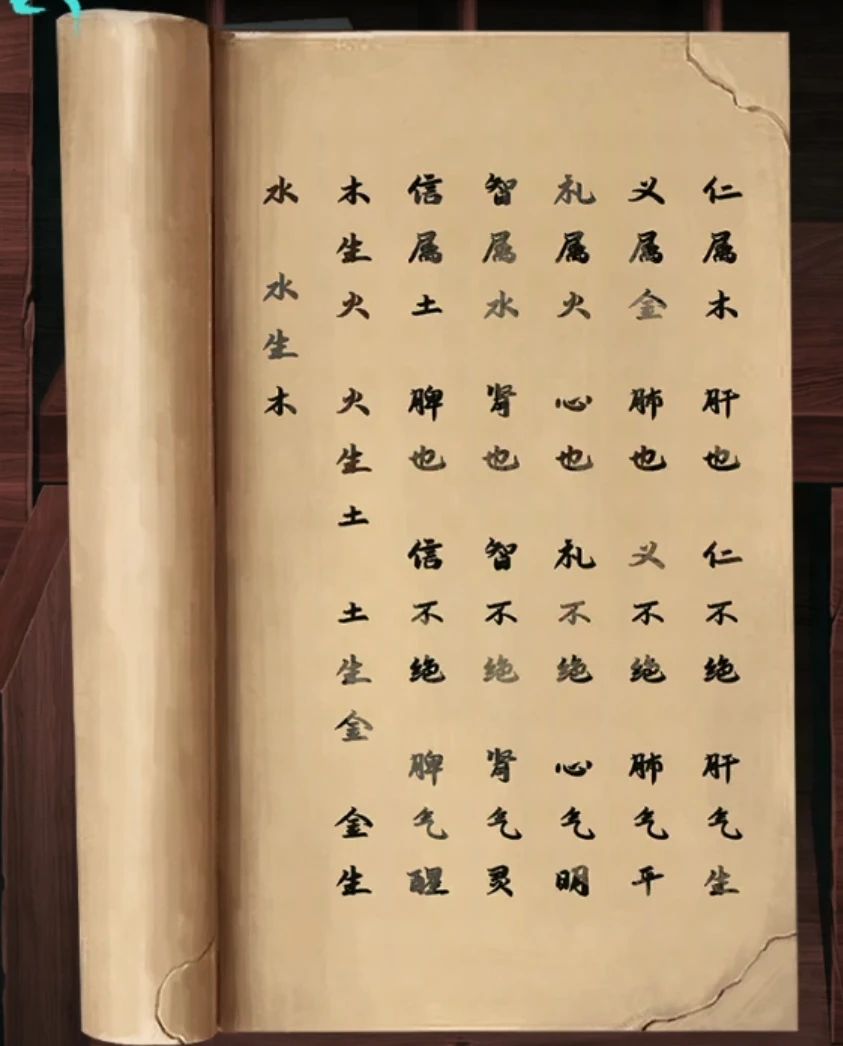 仁属木 肝也 仁不绝 肝气生
义属金 肺也 义不绝 肺气平
礼属火 心也 礼不绝 心气明
智属水 肾也 智不绝 肾气灵
信属土 脾也 信不绝 脾气醒
木生火 火生土 土生金 金生
水 水生木